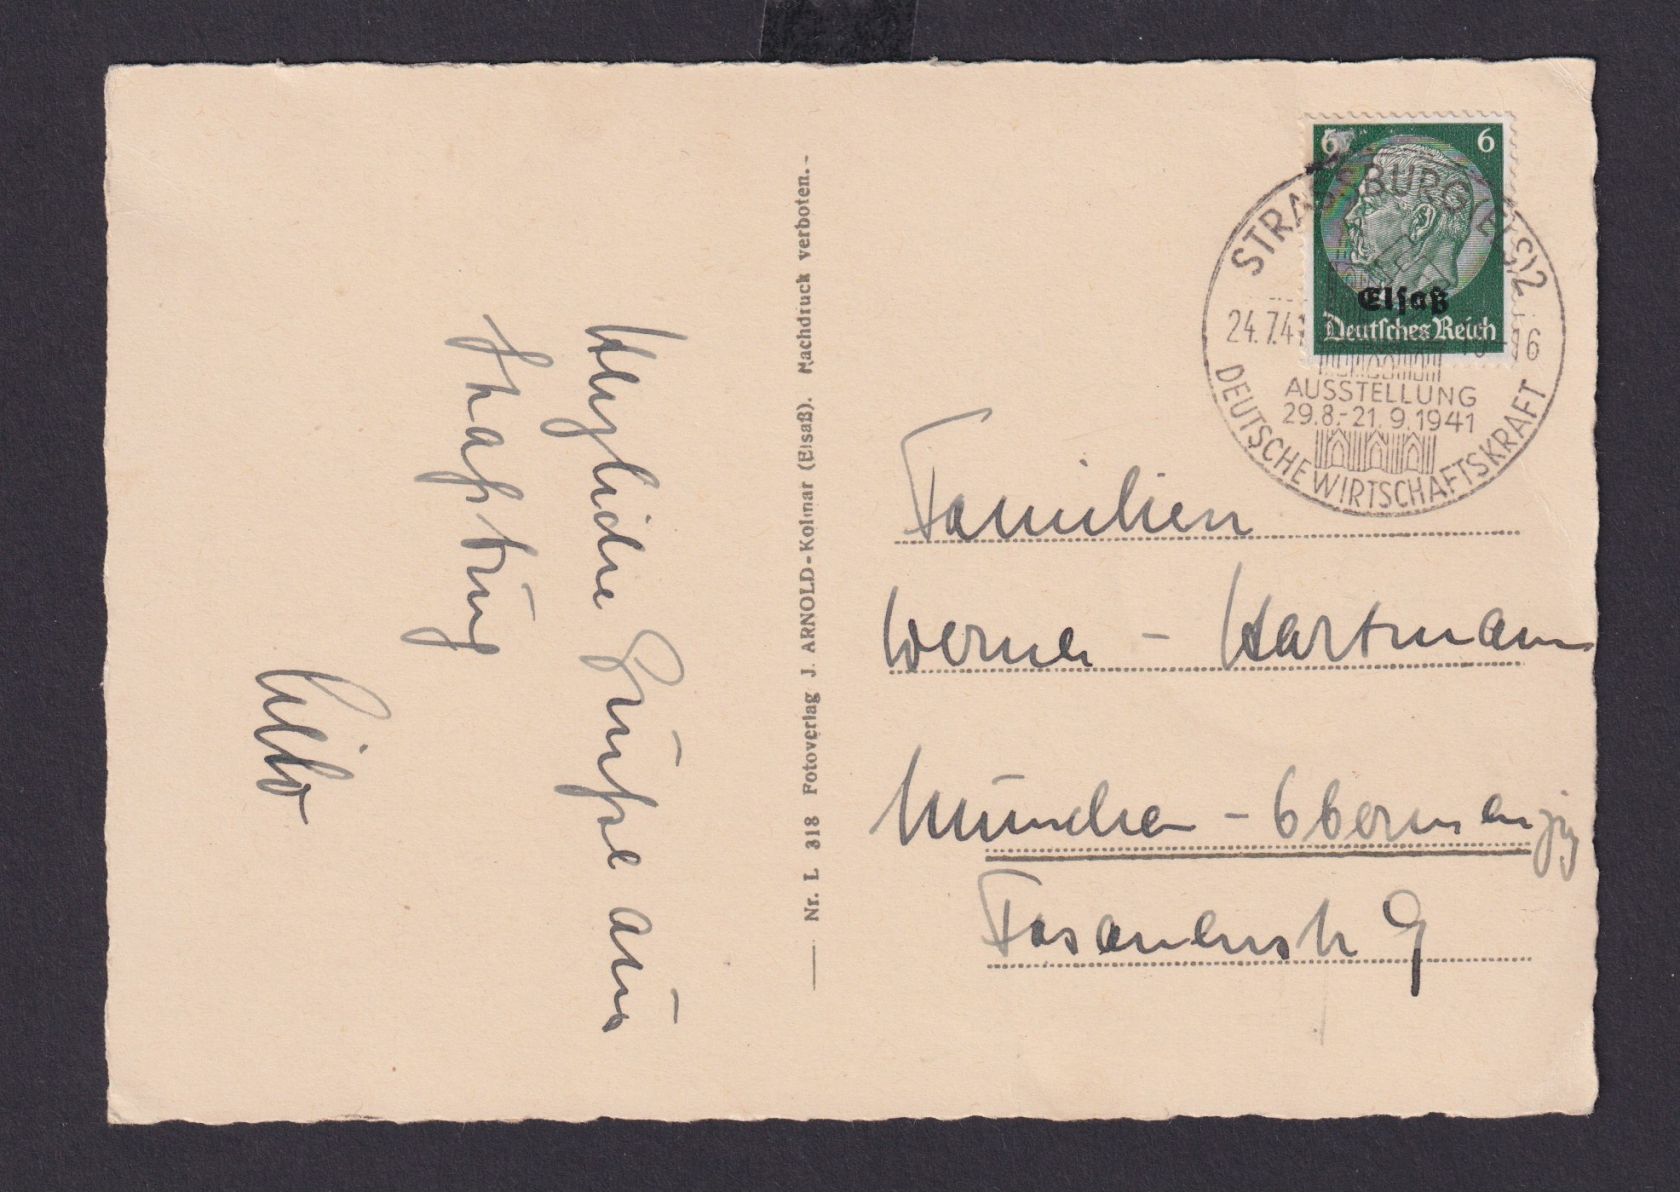 Herzliche Grüße aus
Straßburg
Nr. L 318 Fotoverlag J. ARNOLD-Kolmar (Elsaß). Nachdruck verboten.-
6 6
Elsaß
Deutsches Reich
STRASSBURG (ELS) 2
24.7.41 16
AUSSTELLUNG
29.8.-21.9.1941
DEUTSCHE WIRTSCHAFTSKRAFT
Familien
Werner - Hartmann
München - Obermenzing
Fasanenstr 9